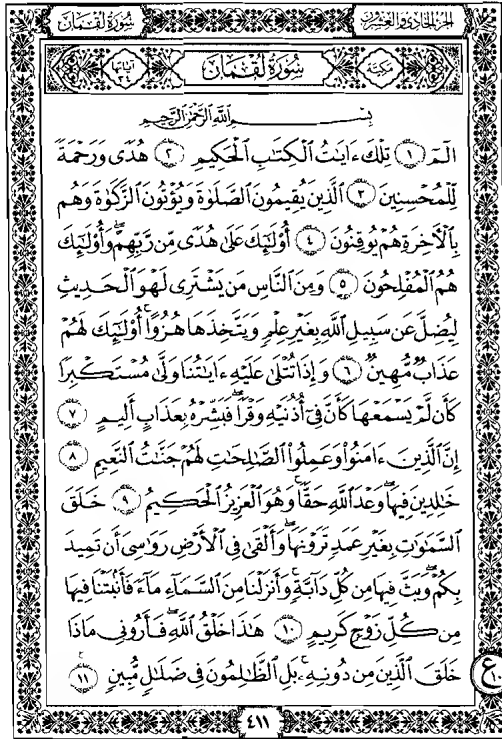 سُورَةُ لُقْمَانَ الجزء الحادي والعشرون
آياتها ٣٤ سُورَةُ لُقْمَانَ مكية
بِسْمِ اللَّهِ الرَّحْمَٰنِ الرَّحِيمِ
الٓمٓ ١ تِلْكَ ءَايَٰتُ ٱلْكِتَٰبِ ٱلْحَكِيمِ ٢ هُدًى وَرَحْمَةً
لِّلْمُحْسِنِينَ ٣ ٱلَّذِينَ يُقِيمُونَ ٱلصَّلَوٰةَ وَيُؤْتُونَ ٱلزَّكَوٰةَ وَهُم
بِٱلْأَخِرَةِ هُمْ يُوقِنُونَ ٤ أُوْلَٰٓئِكَ عَلَىٰ هُدًى مِّن رَّبِّهِمْ ۖ وَأُوْلَٰٓئِكَ
هُمُ ٱلْمُفْلِحُونَ ٥ وَمِنَ ٱلنَّاسِ مَن يَشْتَرِى لَهْوَ ٱلْحَدِيثِ
لِيُضِلَّ عَن سَبِيلِ ٱللَّهِ بِغَيْرِ عِلْمٍ وَيَتَّخِذَهَا هُزُوًا ۚ أُوْلَٰٓئِكَ لَهُمْ
عَذَابٌ مُّهِينٌ ٦ وَإِذَا تُتْلَىٰ عَلَيْهِ ءَايَٰتُنَا وَلَّىٰ مُسْتَكْبِرًا
كَأَن لَّمْ يَسْمَعْهَا كَأَنَّ فِىٓ أُذُنَيْهِ وَقْرًا ۖ فَبَشِّرْهُ بِعَذَابٍ أَلِيمٍ ٧
إِنَّ ٱلَّذِينَ ءَامَنُوا۟ وَعَمِلُوا۟ ٱلصَّٰلِحَٰتِ لَهُمْ جَنَّٰتُ ٱلنَّعِيمِ ٨
خَٰلِدِينَ فِيهَا ۖ وَعْدَ ٱللَّهِ حَقًّا ۚ وَهُوَ ٱلْعَزِيزُ ٱلْحَكِيمُ ٩ خَلَقَ
ٱلسَّمَٰوَٰتِ بِغَيْرِ عَمَدٍ تَرَوْنَهَا ۖ وَأَلْقَىٰ فِى ٱلْأَرْضِ رَوَٰسِىَ أَن تَمِيدَ
بِكُمْ وَبَثَّ فِيهَا مِن كُلِّ دَآبَّةٍ ۚ وَأَنزَلْنَا مِنَ ٱلسَّمَآءِ مَآءً فَأَنۢبَتْنَا فِيهَا
مِن كُلِّ زَوْجٍ كَرِيمٍ ١٠ هَٰذَا خَلْقُ ٱللَّهِ فَأَرُونِى مَاذَا
خَلَقَ ٱلَّذِينَ مِن دُونِهِۦ ۚ بَلِ ٱلظَّٰلِمُونَ فِى ضَلَٰلٍ مُّبِينٍ ١١
ع ١٠
٤١١